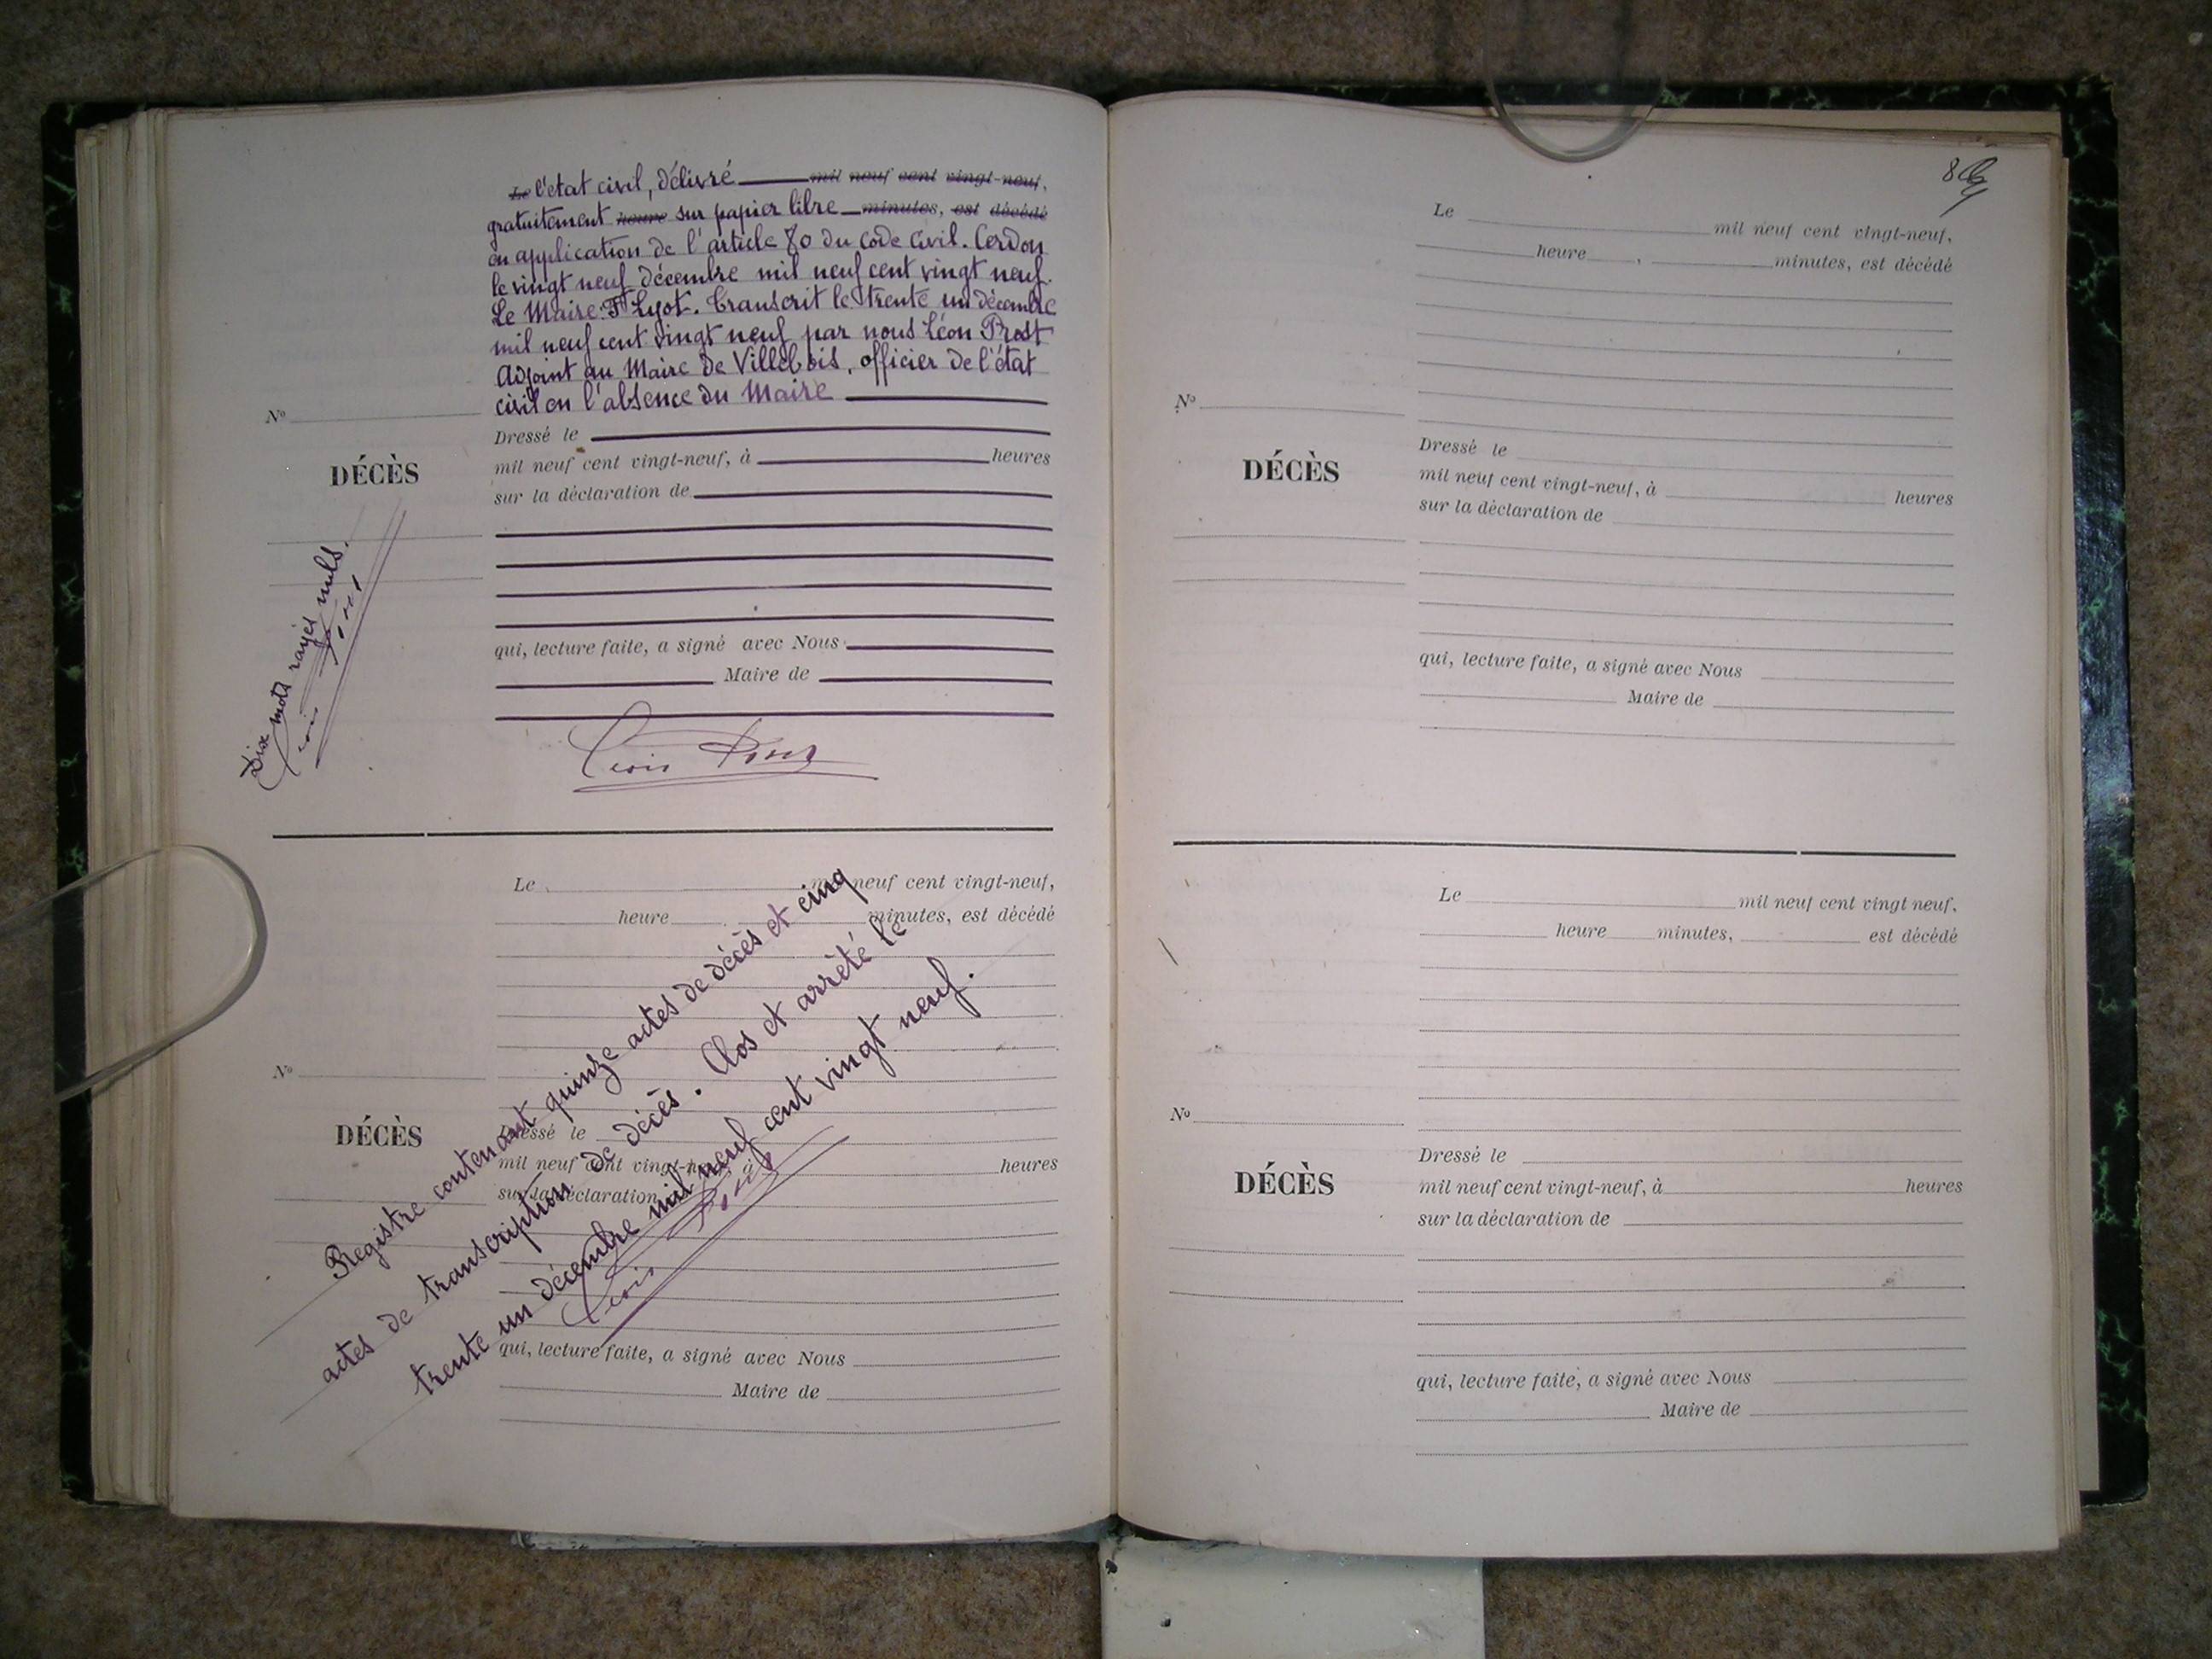 Le l'état civil, délivré mil neuf cent vingt-neuf,
gratuitement heure sur papier libre minutes, est décédé
en application de l'article 80 du code civil. Cerdon
le vingt neuf décembre mil neuf cent vingt neuf.
Le Maire: Fs Lyot. Transcrit le trente un décembre
mil neuf cent vingt neuf par nous Léon Prost
Adjoint au Maire de Villebois, officier de l'état
civil en l'absence du Maire
No
DÉCÈS
Dressé le
mil neuf cent vingt-neuf, à heures
sur la déclaration de
Dix mots rayés nuls.
qui, lecture faite, a signé avec Nous
Maire de
Le mil neuf cent vingt-neuf,
heure minutes, est décédé
No
DÉCÈS
Dressé le
mil neuf cent vingt-neuf, à heures
sur la déclaration
qui, lecture faite, a signé avec Nous
Maire de
Registre contenant quinze actes de décès et cinq
actes de transcription de décès. Clos et arrêté le
trente un décembre mil neuf cent vingt neuf.
8
Le mil neuf cent vingt-neuf,
heure , minutes, est décédé
No
DÉCÈS
Dressé le
mil neuf cent vingt-neuf, à heures
sur la déclaration de
qui, lecture faite, a signé avec Nous
Maire de
Le mil neuf cent vingt neuf,
heure minutes, est décédé
No
DÉCÈS
Dressé le
mil neuf cent vingt-neuf, à heures
sur la déclaration de
qui, lecture faite, a signé avec Nous
Maire de